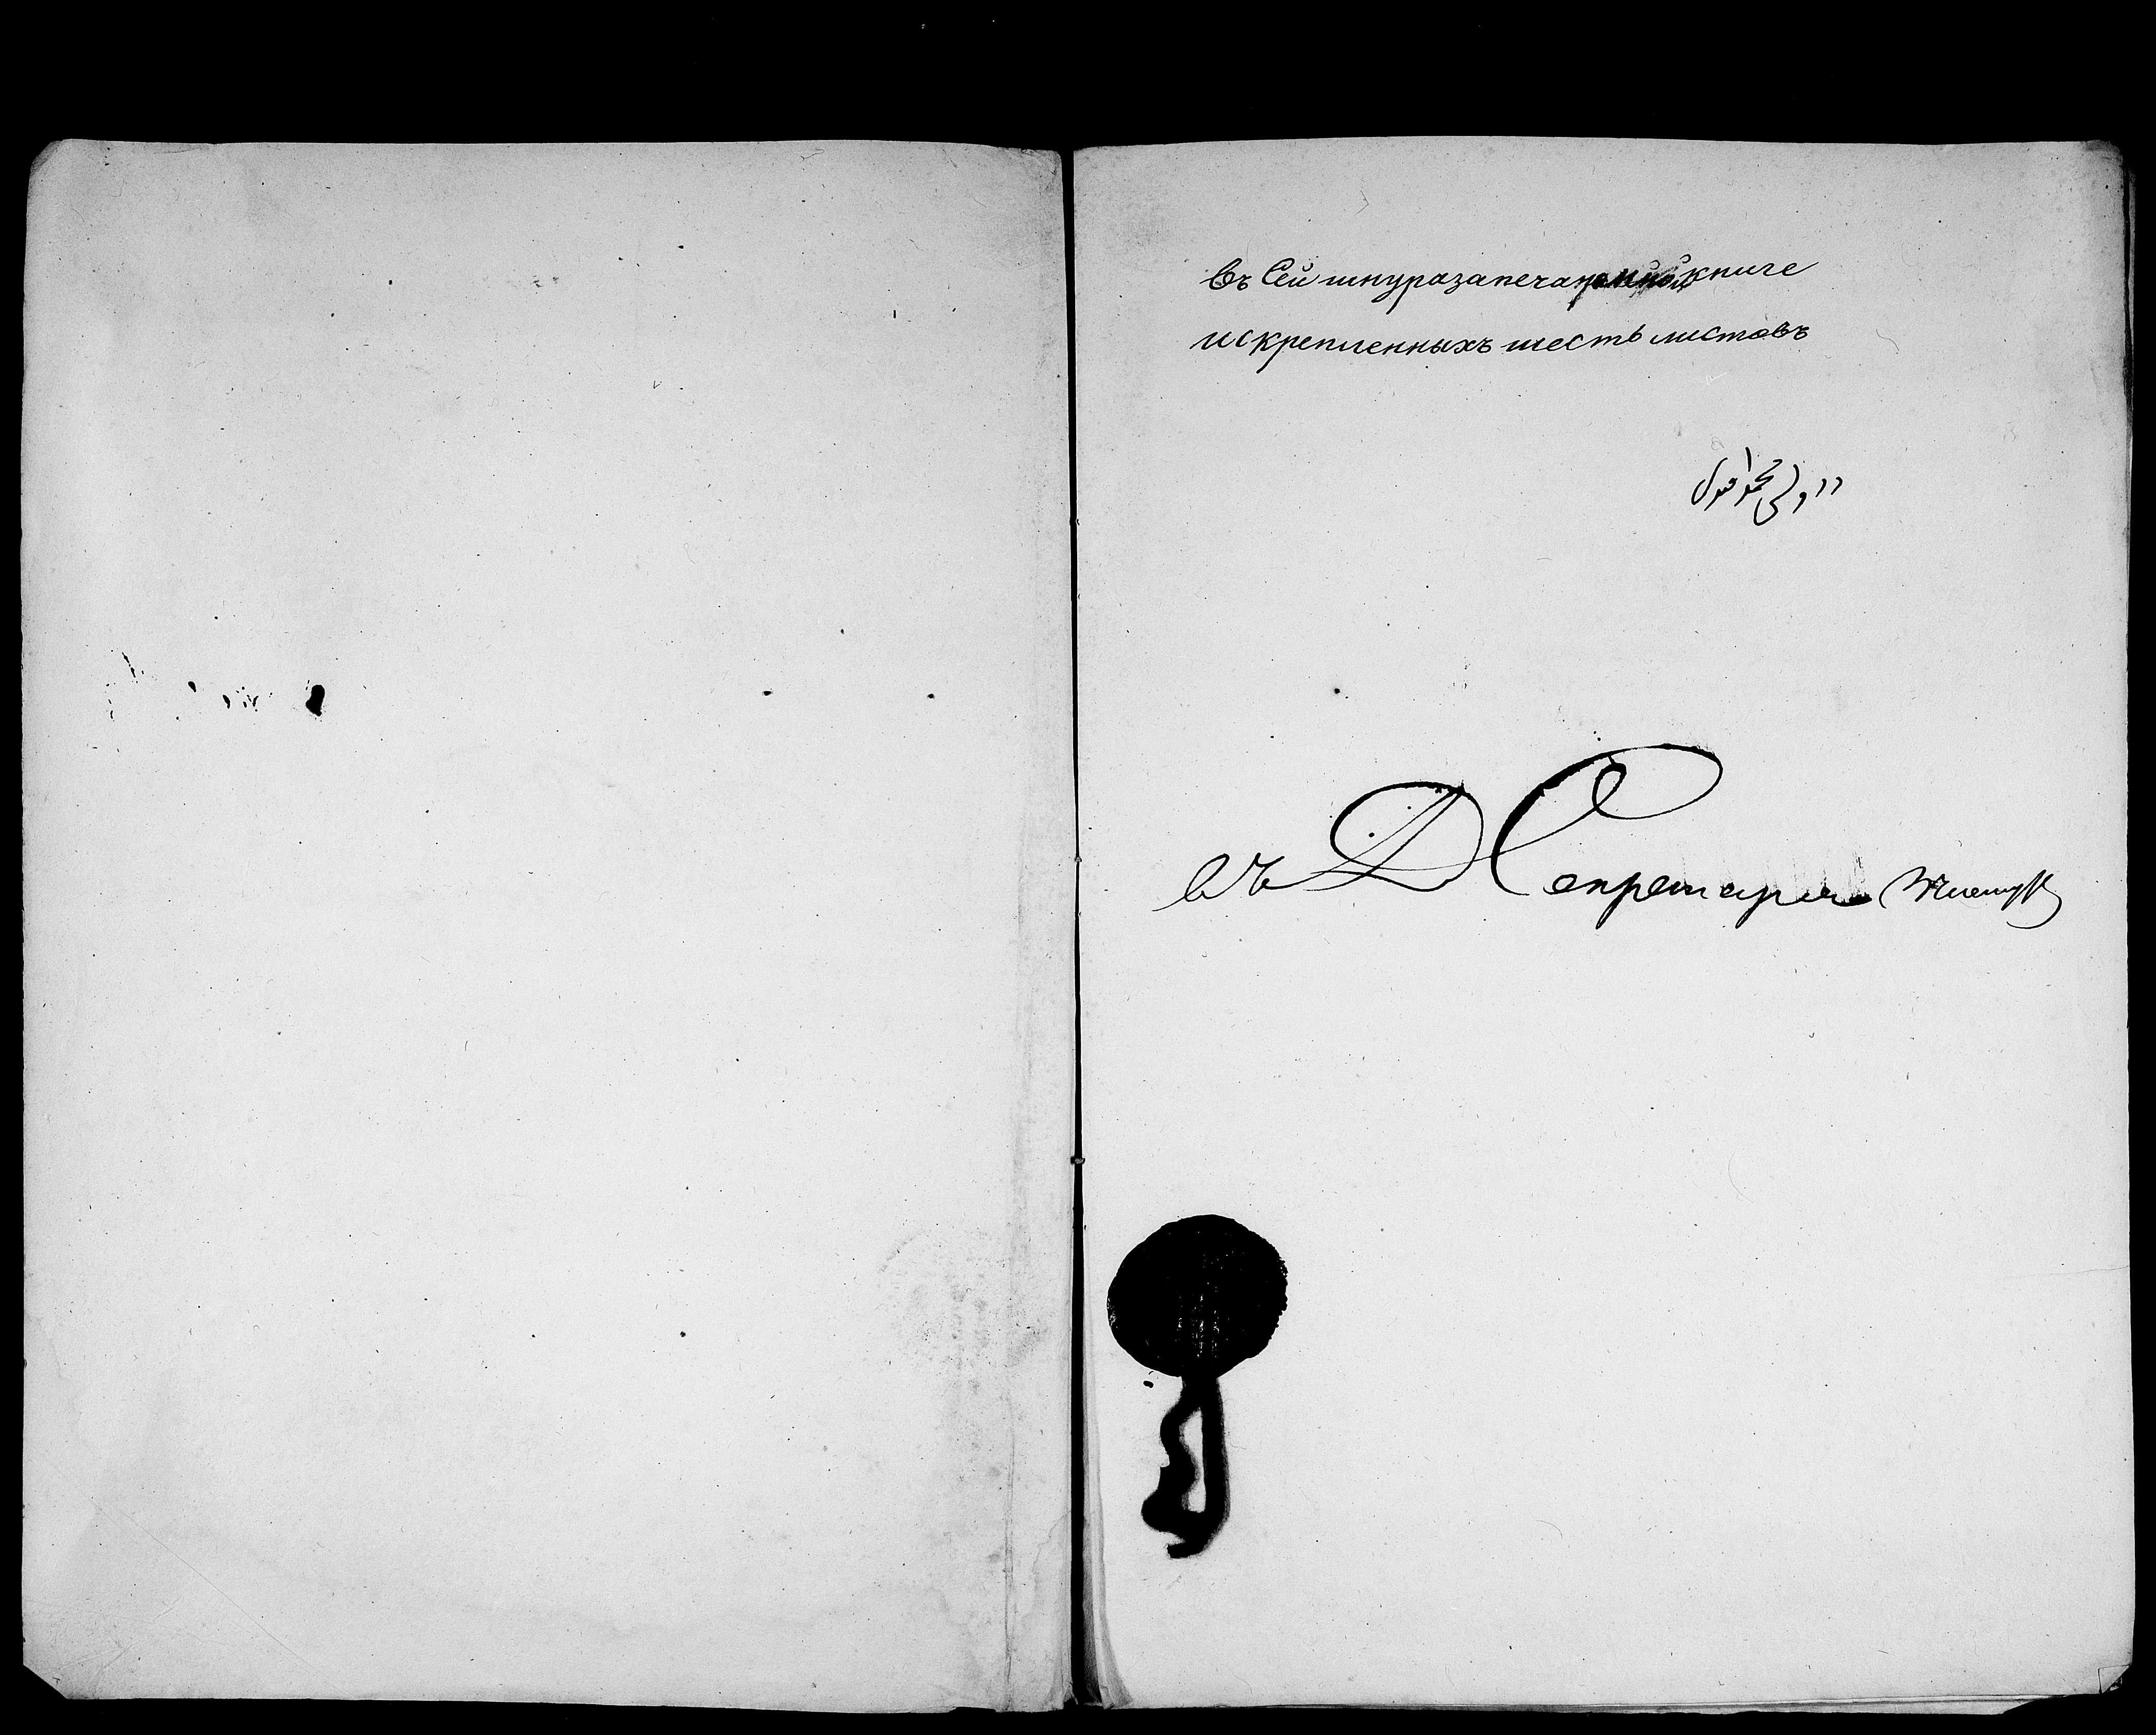 въ Сей шнуразапечатанной книге
искрепленныхъ шесть листовъ
въ Д Секретаря